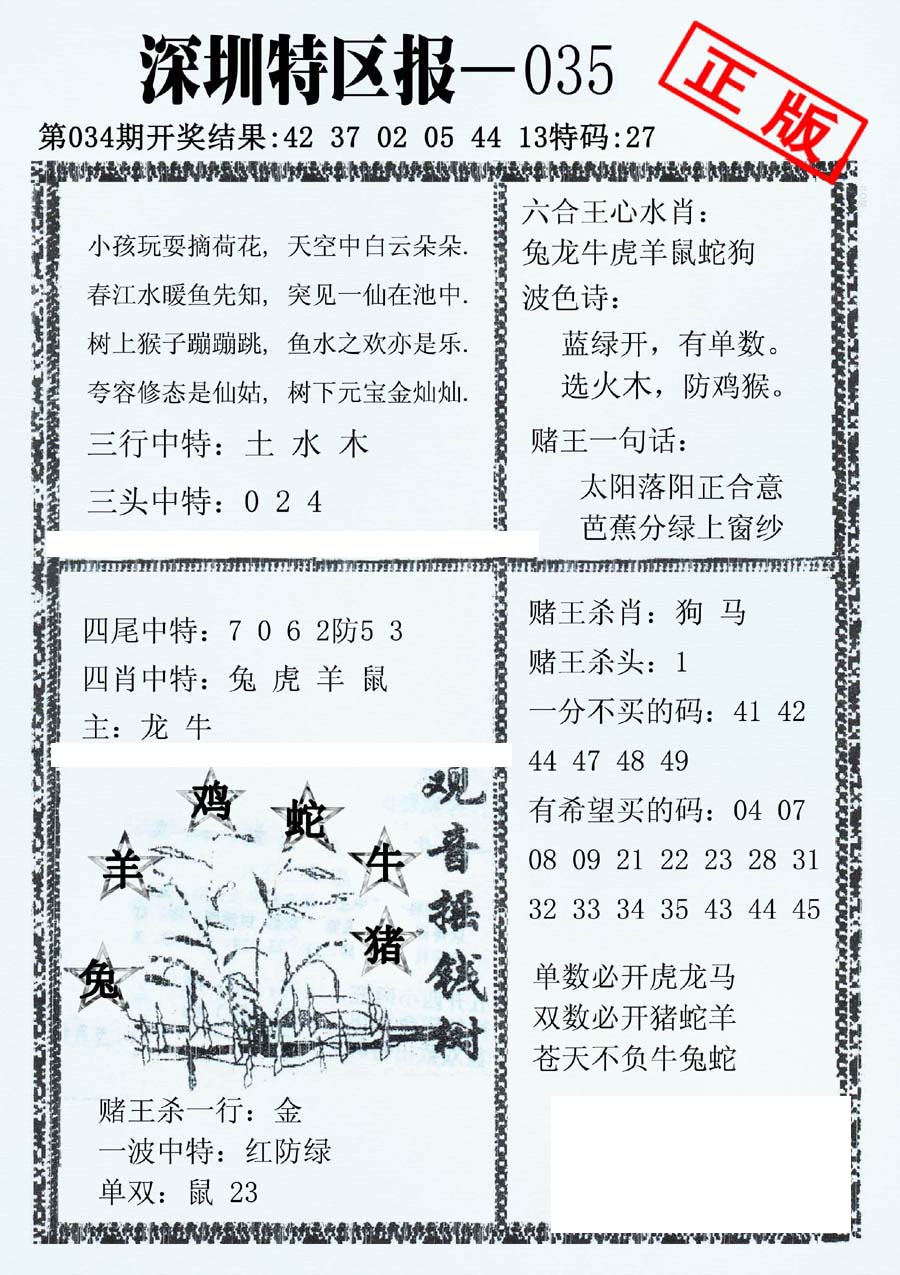 深圳特区报—035
正版
第034期开奖结果:42 37 02 05 44 13特码:27
小孩玩耍摘荷花, 天空中白云朵朵.
春江水暖鱼先知, 突见一仙在池中.
树上猴子蹦蹦跳, 鱼水之欢亦是乐.
夸容修态是仙姑, 树下元宝金灿灿.
三行中特: 土 水 木
三头中特: 0 2 4
六合王心水肖:
兔龙牛虎羊鼠蛇狗
波色诗:
蓝绿开，有单数。
选火木，防鸡猴。
赌王一句话:
太阳落阳正合意
芭蕉分绿上窗纱
四尾中特: 7 0 6 2防5 3
四肖中特: 兔 虎 羊 鼠
主: 龙 牛
鸡
蛇
羊
牛
猪
兔
观音摇钱树
赌王杀一行: 金
一波中特: 红防绿
单双: 鼠 23
赌王杀肖: 狗 马
赌王杀头: 1
一分不买的码: 41 42
44 47 48 49
有希望买的码: 04 07
08 09 21 22 23 28 31
32 33 34 35 43 44 45
单数必开虎龙马
双数必开猪蛇羊
苍天不负牛兔蛇